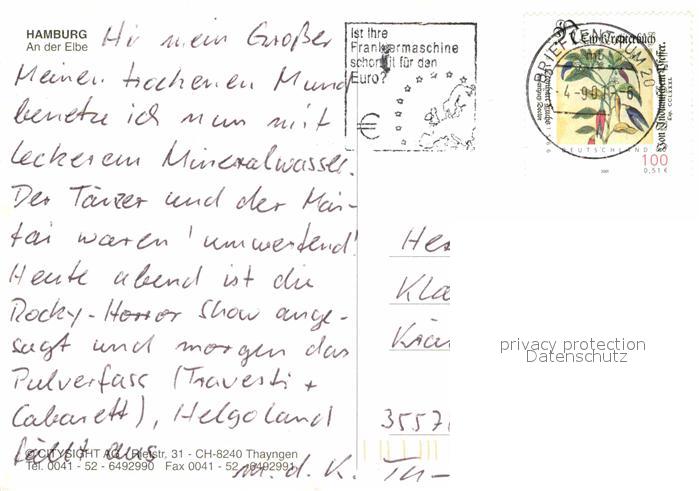 HAMBURG
An der Elbe
Hi mein Großer
Meinen trockenen Mund
benetze ich nun mit
leckerem Mineralwasser.
Der Tänzer und der Mai-
tai waren 'umwerfend'!
Heute abend ist die
Rocky-Horror Show ange-
sagt und morgen das
Pulverfass (Travesti +
Cabarett), Helgoland
fällt aus
m.d.K.
© CITYSIGHT AG - Rietstr. 31 - CH-8240 Thayngen
Tel. 0041 - 52 - 6492990 Fax 0041 - 52 - 6492991
Ist Ihre
Frankiermaschine
schon fit für den
Euro?
€
BRIEFZENTRUM 20
DEUTSCHLAND
2001
100
0,51 €
Her
Kla
3557
privacy protection
Datenschutz